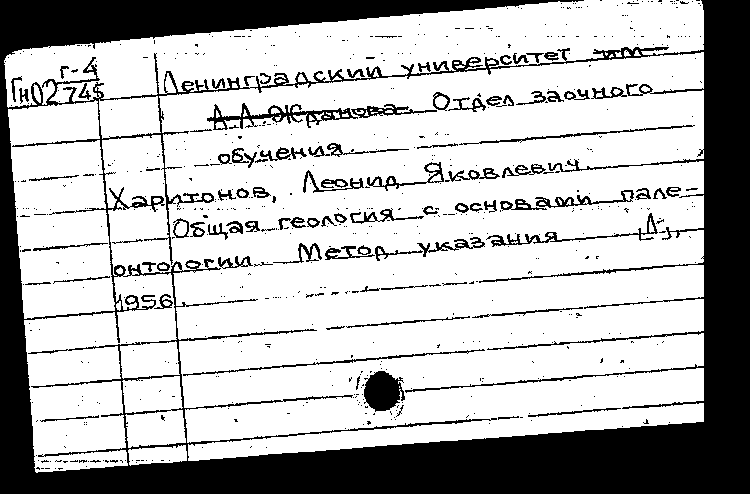 Гн02 г-4/745
Ленинградский университет им
А.А.Жданова. Отдел заочного
обучения.
Харитонов, Леонид Яковлевич.
Общая геология с основами пале-
онтологии. Метод. указания [Л],
1956.